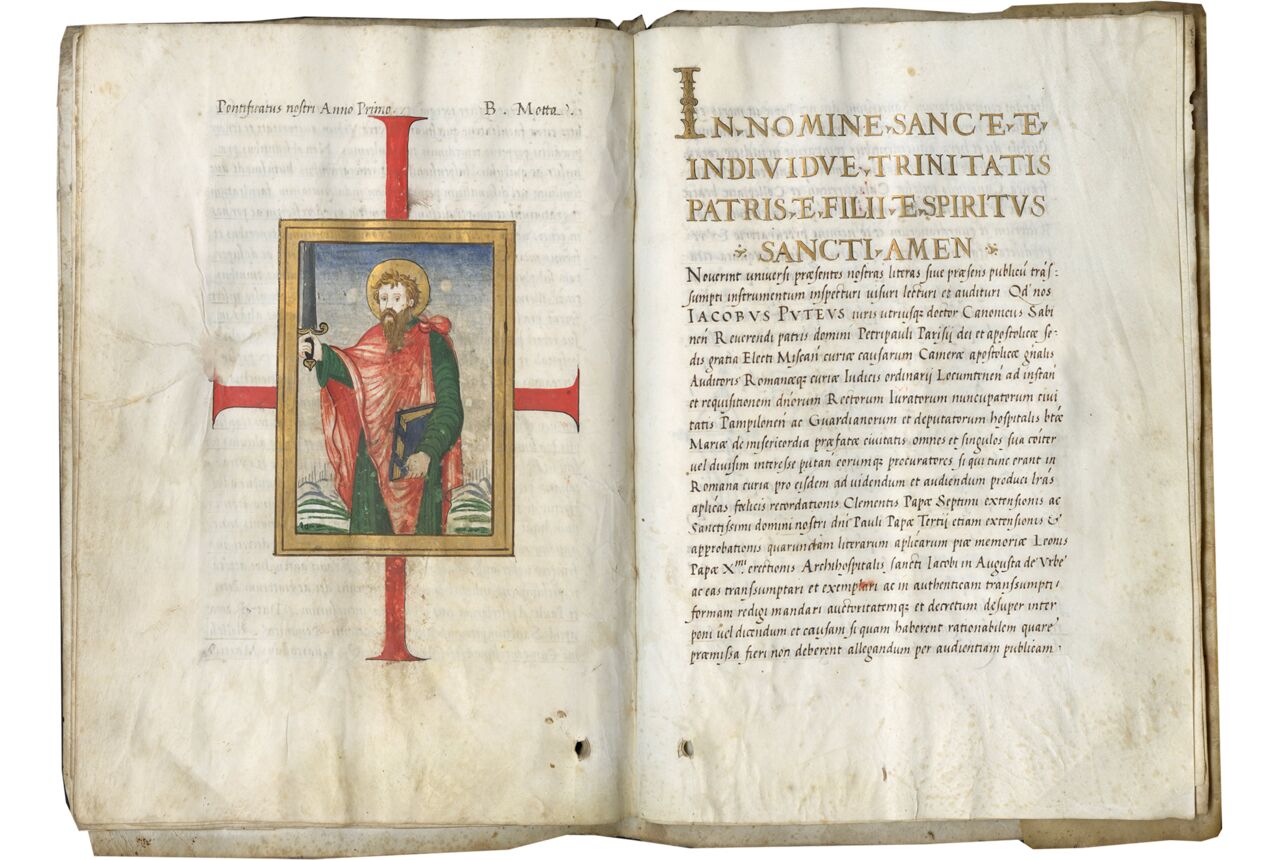 Pontificatus nostri Anno Primo. B. Motta.
IN NOMINE SANCTE E
INDIVIDVE TRINITATIS
PATRIS E FILII E SPIRITVS
SANCTI AMEN
Nouerint uniuersi præsentes nostras literas siue præsens publicũ trãs:
sumpti instrumentum inspecturi uisuri lecturi et audituri Qd nos
IACOBVS PVTEVS iuris utriusq; doctor Canonicus Sabi
neñ Reuerendi patris domini Petripauli Parisij dei et apostolicæ se-
dis gratia Electi curiæ causarum Cameræ apostolicæ gñalis
Auditoris Romanæq; curiæ Iudicis ordinarij Locumteneñ ad instañ
et requisitionem dñorum Rectorum Iuratorum nuncupatorum ciui
tatis Pampiloneñ ac Guardianorum et deputatorum hospitalis btæ
Mariæ de misericordia præfatæ ciuitatis omnes et singulos sua cõiter
uel diuisim interesse putañ eorumq; procuratores si qui tunc erant in
Romana curia pro eisdem ad videndum et audiendum produci lrãs
aplicas fœlicis recordationis Clementis Papæ Septimi extensionis ac
Sanctissimi domini nostri dñi Pauli Papæ Tertij etiam extensionis &
approbationis quarundam literarum aplicarum piæ memoriæ Leonis
Papæ X.mi erectionis Archihospitalis sancti Iacobi in Augusta de Vrbe
ac eas transsumptari et exemplari ac in authenticam transsumpti
formam redigi mandari auctoritatemq; et decretum desuper inter
poni uel dicendum et causam si quam haberent rationabilem quare
præmissa fieri non deberent allegandum per audientiam publicam